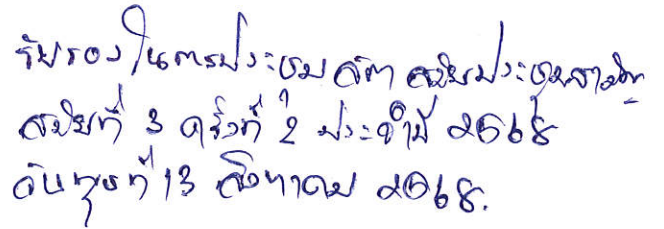 รับรองในการประชุมสภา สมัยประชุมสามัญ
สมัยที่ 3 ครั้งที่ 2 ประจำปี 2568
วันพุธที่ 13 สิงหาคม 2568.